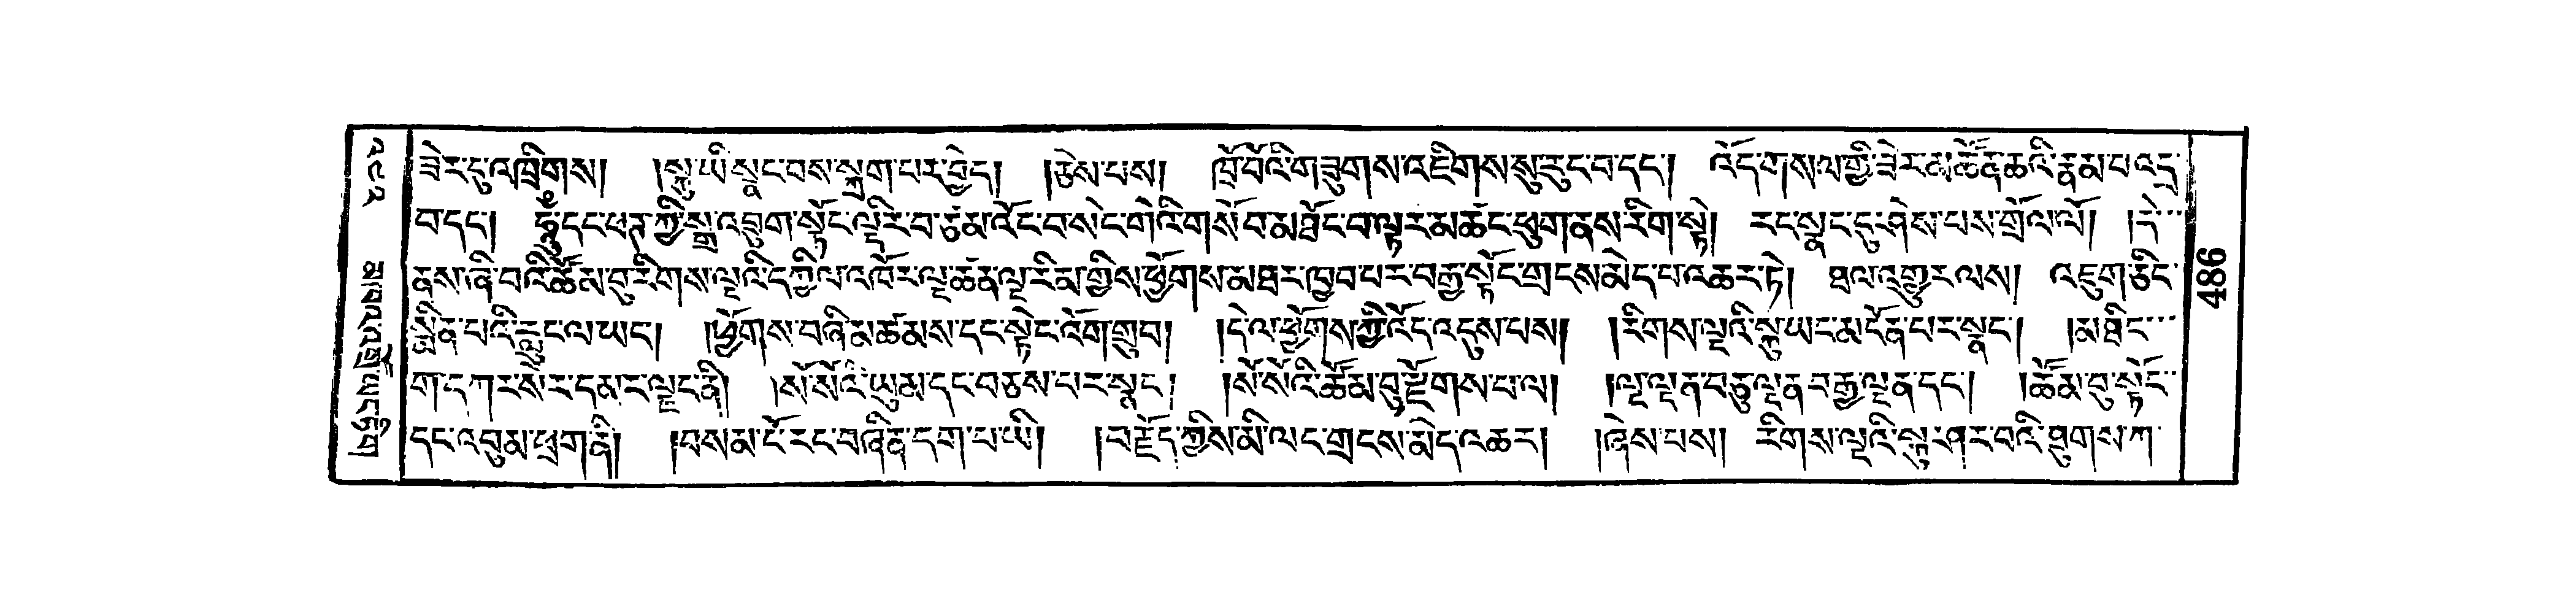 ཟེར་དུ་འཁྲིགས། །སྐུ་ཡི་སྣང་བས་སྐྲག་པར་བྱེད། །ཅེས་པས། ཁྲོ་བོའི་གཟུགས་འཇིགས་སུ་རུང་བ་དང་། འོད་ཀས་ལ་གྱི་ཟེར་མ་ཚོན་ཆའི་རྣམ་པ་འདྲ་
བ་དང་། ཧཱུྃ་དང་ཕཊ་ཀྱི་སྒྲ་འབྲུག་སྟོང་ལྡིར་བ་ཙམ་འོང་བ་སེང་གེའི་གསེབ་མཐོང་བ་ལྟར་མཆང་ཕུག་ནས་རིག་སྟེ། རང་སྣང་དུ་ཤེས་པས་གྲོལ་ལོ། །དེ་
ནས་ཞི་བའི་ཚོམ་བུ་རིགས་ལྔའི་དཀྱིལ་འཁོར་ལྔ་ཚན་ལྔ་རིམ་གྱིས་ཕྱོགས་མཐར་ཁྱབ་པར་བརྒྱ་སྟོང་གྲངས་མེད་པ་འཆར་ཏེ། ཐལ་འགྱུར་ལས། འཇུག་རྩིང་
སྤྲིན་པའི་རླུང་ལ་ཡང་། །ཕྱོགས་བཞི་མཚམས་དང་སྟེང་འོག་གྲུབ། །དེ་ལ་ཕྱོགས་ཀྱི་འོད་འདུས་པས། །རིགས་ལྔའི་སྐུ་ཡང་མ་ངོན་པར་སྣང་། །མཐིང་
ག་དཀར་སེར་དམར་ལྗང་ནི། །སོ་སོའི་ཡུམ་དང་བཅས་པར་སྣང་། །སོ་སོའི་ཚོམ་བུ་རྫོགས་པ་ལ། །ལྔ་ལྡན་བཅུ་ལྡན་བརྒྱ་ལྡན་དང་། །ཚོམ་བུ་སྟོང་
དང་འབུམ་ཕྲག་ནི། །བསམ་ངོ་རང་བཞིན་དག་པ་ཡི། །བརྗོད་ཀྱིས་མི་ལང་གྲངས་མེད་འཆར། །ཞེས་པས། རིགས་ལྔའི་སྐུ་ཤར་བའི་ཐུགས་ཀ་
684